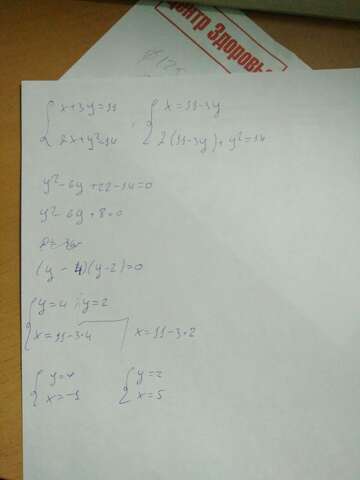 Центр Здоровья
{ x+3y=11
2x+y²=14 , { x=11-3y
2(11-3y)+y²=14
y²-6y+22-14=0
y²-6y+8=0
(y-4)(y-2)=0
{ y=4 ; y=2
x=11-3•4 x=11-3•2
{ y=4
x=-1 { y=2
x=5